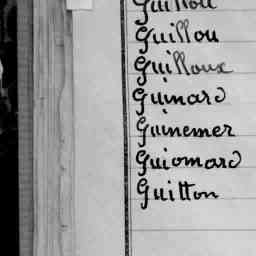 Guillou
Guillou
Guilloux
Guinard
Guinemer
Guiomard
Guitton